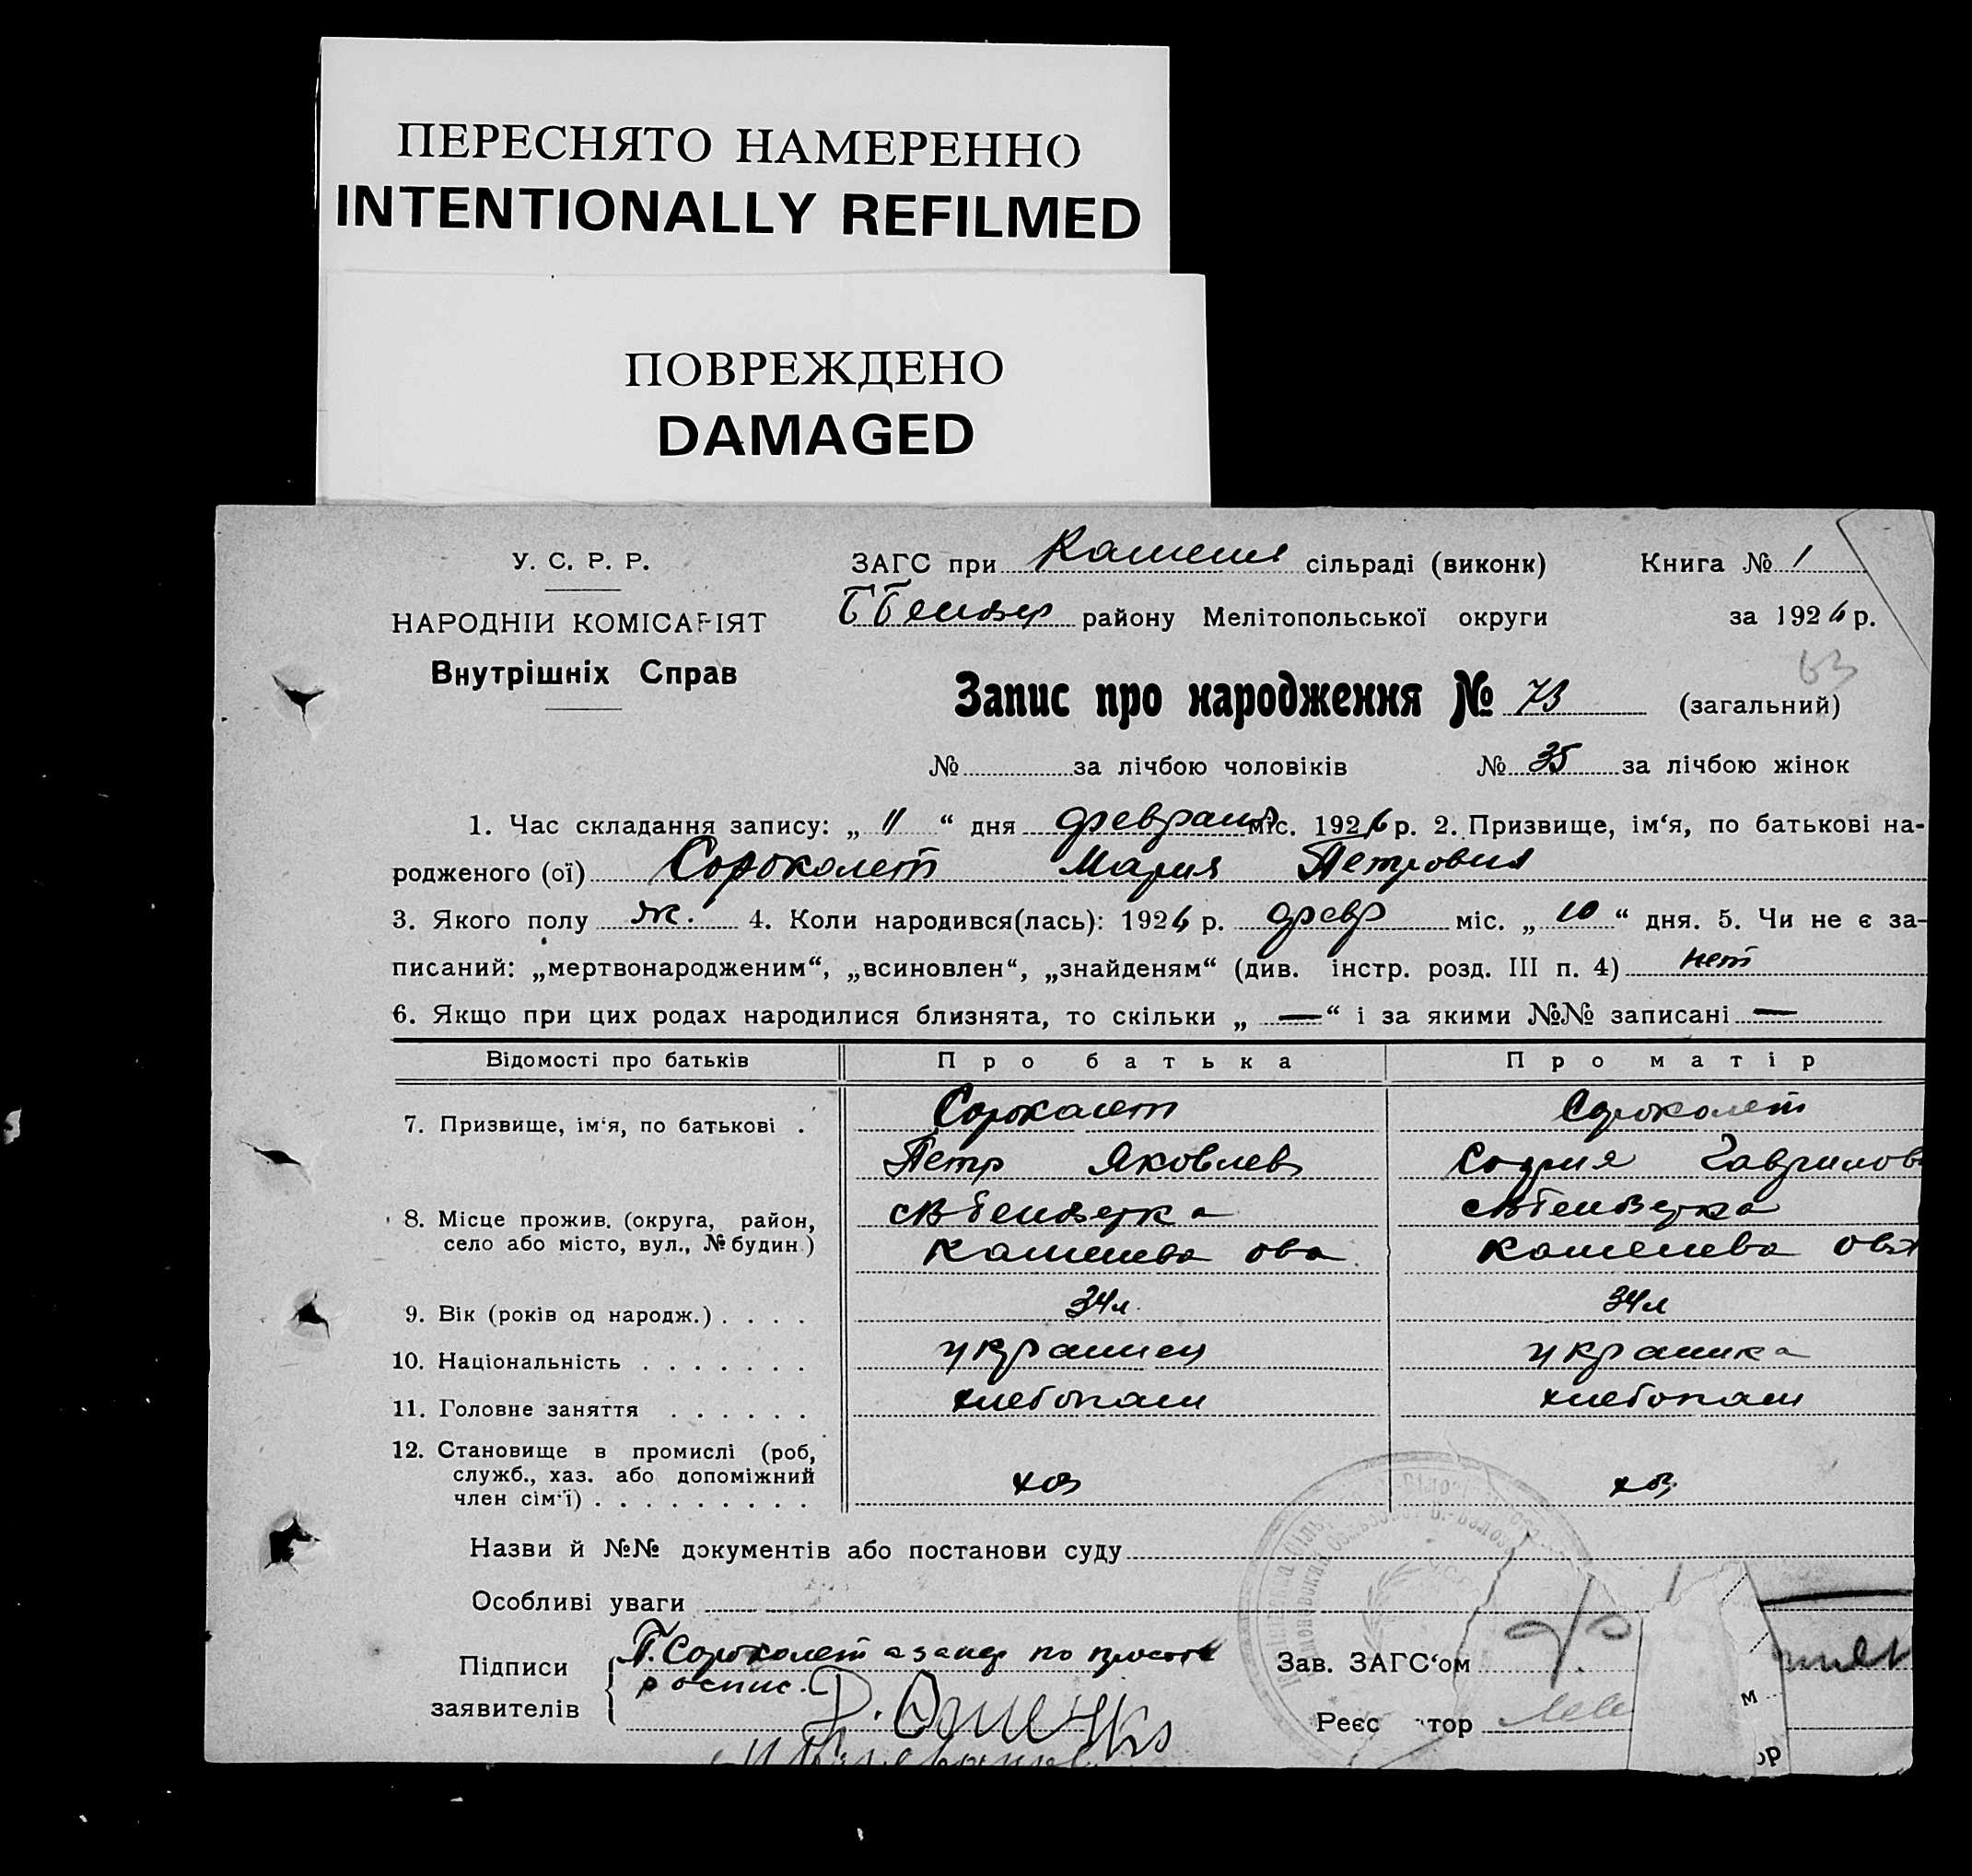 ПЕРЕСНЯТО НАМЕРЕННО
INTENTIONALLY REFILMED
ПОВРЕЖДЕНО
DAMAGED
У. С. Р. Р.
НАРОДНІЙ КОМІСАРІЯТ
Внутрішніх Справ
ЗАГС при сільраді (виконк) Книга № 1
району Мелітопольської округи за 1926 р.
63
Запис про народження № 73 (загальний)
№ за лічбою чоловіків № 35 за лічбою жінок
1. Час складання запису: „ 11 “ дня февраля міс. 1926 р. 2. Призвище, ім‘я, по батькові на-
родженого (ої) Сороколет Мария Петровна
3. Якого полу ж. 4. Коли народився(лась): 1926 р. февр міс. „ 10 “ дня. 5. Чи не є за-
писаний: „мертвонародженим“, „всиновлен“, „знайденям“ (див. інстр. розд. III п. 4) нет
6. Якщо при цих родах народилися близнята, то скільки „ — “ і за якими №№ записані —
Відомості про батьків Про батька Про матір
7. Призвище, ім‘я, по батькові . Сороколет Сороколет
Петр Яковлев София Гаврилов
8. Місце прожив. (округа, район,
село або місто, вул., № будин.)
9. Вік (років од народж.) . . . . 34 л. 34 л
10. Національність . . . . . . . украинец украинка
11. Головне заняття . . . . . . хлебопаш хлебопаш
12. Становище в промислі (роб,
служб., хаз. або допоміжний
член сім‘ї) . . . . . . . . . хоз хоз.
Назви й №№ документів або постанови суду
Особливі уваги
Підписи
заявителів
П. Сороколет а за нер по просьбе
роспис.
Зав. ЗАГС‘ом
Реєс тор
м
ор